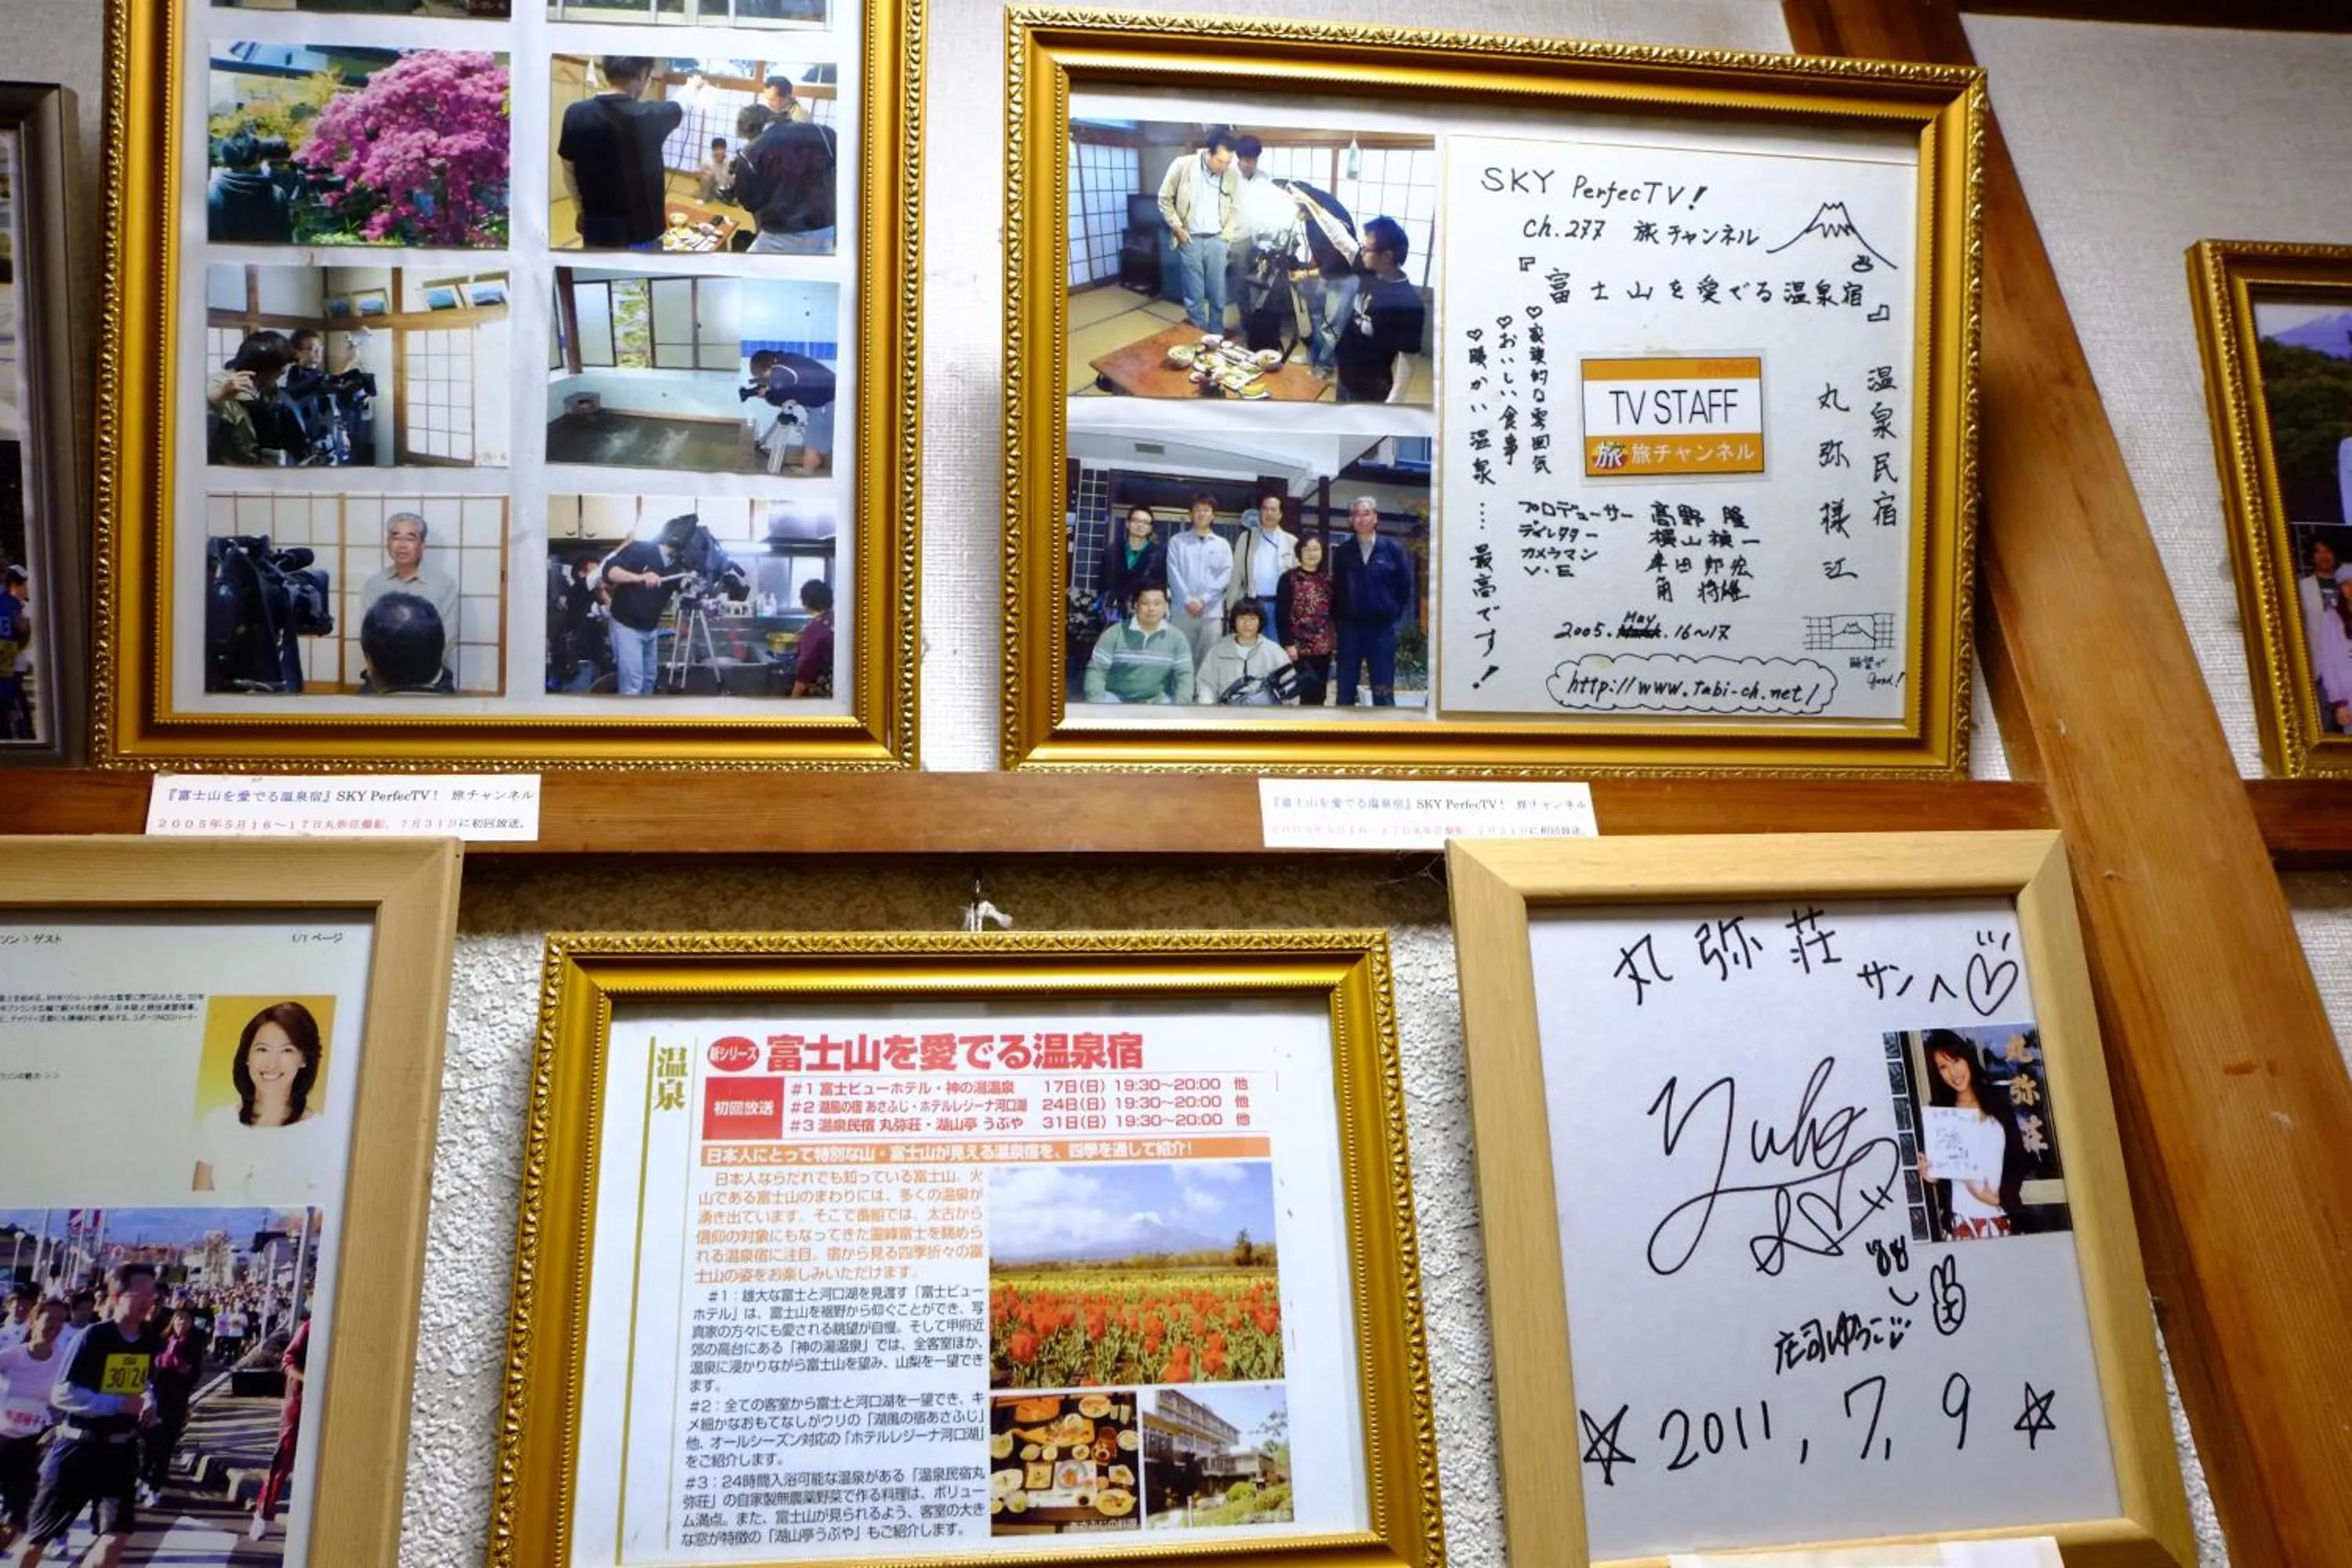 SKY PerfecTV!
Ch.277 旅チャンネル
『富士山を愛でる温泉宿』
温泉民宿
丸弥様江
♡家族的な雰囲気
♡おいしい食事
♡暖かい温泉....最高です!
TV STAFF
旅 旅チャンネル
プロデューサー 高野 隆
ディレクター 横山禎一
カメラマン
V.E
2005. May 16~17
眺望が
good!
http://www.tabi-ch.net/
『富士山を愛でる温泉宿』SKY PerfecTV! 旅チャンネル
2005年5月16~17日丸弥荘撮影。7月31日に初回放送。
『富士山を愛でる温泉宿』SKY PerfecTV! 旅チャンネル
2005年5月16~17日丸弥荘撮影。7月31日に初回放送。
ソン > ゲスト
1/1 ページ
30124
温泉
新シリーズ 富士山を愛でる温泉宿
初回放送
#1 富士ビューホテル・神の湯温泉 17日(日) 19:30~20:00 他
#2 湖風の宿 あさふじ・ホテルレジーナ河口湖 24日(日) 19:30~20:00 他
#3 温泉民宿 丸弥荘・湖山亭 うぶや 31日(日) 19:30~20:00 他
日本人にとって特別な山・富士山が見える温泉宿を、四季を通して紹介!
日本人ならだれでも知っている富士山。火
山である富士山のまわりには、多くの温泉が
湧き出ています。そこで番組では、太古から
信仰の対象にもなってきた霊峰富士を眺めら
れる温泉宿に注目。宿から見る四季折々の富
士山の姿をお楽しみいただけます。
#1：雄大な富士と河口湖を見渡す「富士ビュー
ホテル」は、富士山を裾野から仰ぐことができ、写
真家の方々にも愛される眺望が自慢。そして甲府近
郊の高台にある「神の湯温泉」では、全客室ほか、
温泉に浸かりながら富士山を望み、山梨を一望でき
ます。
#2：全ての客室から富士と河口湖を一望でき、キ
メ細かなおもてなしがウリの「湖風の宿あさふじ」
他、オールシーズン対応の「ホテルレジーナ河口湖」
をご紹介します。
#3：24時間入浴可能な温泉がある「温泉民宿丸
弥荘」の自家製無農薬野菜で作る料理は、ボリュー
ム満点。また、富士山が見られるよう、客室の大き
な窓が特徴の「湖山亭うぶや」もご紹介します。
あさふじの料理
丸弥荘サンへ♡
丸弥荘
庄司ゆうこ
☆2011, 7, 9☆